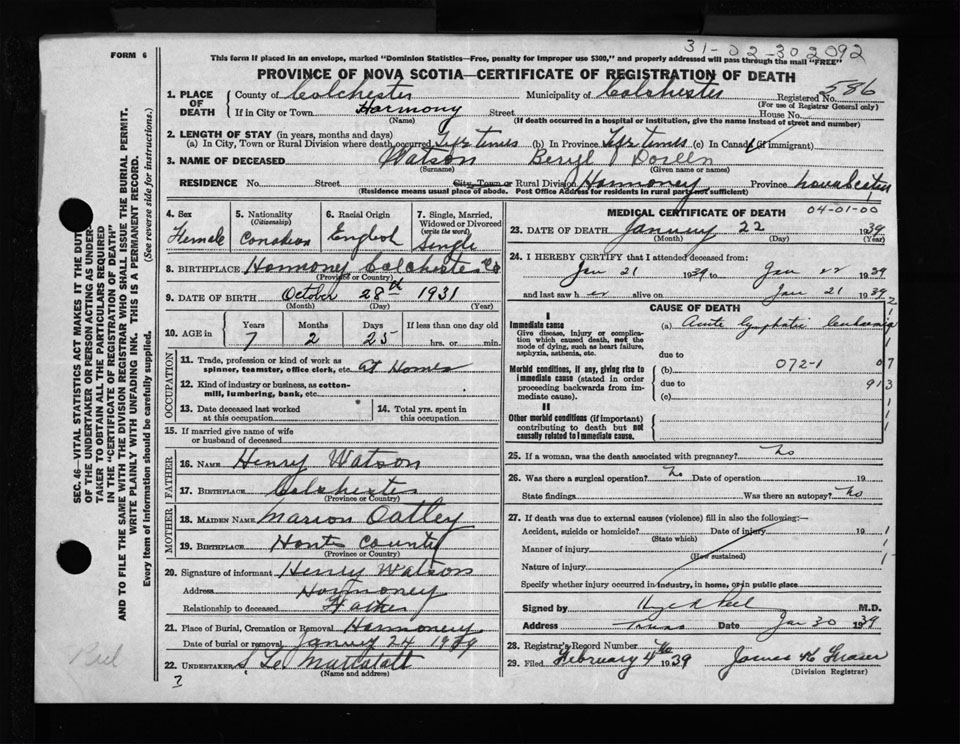 31-02-302092
FORM 6
This form if placed in an envelope, marked "Dominion Statistics—Free, penalty for improper use $300," and properly addressed will pass through the mail "FREE"
PROVINCE OF NOVA SCOTIA—CERTIFICATE OF REGISTRATION OF DEATH
1. PLACE OF DEATH County of Colchester Municipality of Colchester Registered No. 586
(For use of Registrar General only)
If in City or Town Harmony Street House No.
(Name) (If death occurred in a hospital or institution, give the name instead of street and number)
2. LENGTH OF STAY (in years, months and days)
(a) In City, Town or Rural Division where death occurred Life times (b) In Province Life times (c) In Canada (if immigrant)
3. NAME OF DECEASED Watson Beryl Doreen
(Surname) (Given name or names)
RESIDENCE No. Street City, Town or Rural Division Harmoney Province Novascotia
(Residence means usual place of abode. Post Office Address for residents in rural parts not sufficient)
4. Sex Female
5. Nationality (Citizenship) Canadian
6. Racial Origin English
7. Single, Married, Widowed or Divorced (write the word) Single
8. BIRTHPLACE Harmoney Colchester Co
(Province or Country)
9. DATE OF BIRTH October 28th 1931
(Month) (Day) (Year)
10. AGE in Years 7 Months 2 Days 25 If less than one day old hrs. or min.
OCCUPATION
11. Trade, profession or kind of work as spinner, teamster, office clerk, etc. at Home
12. Kind of industry or business, as cotton-mill, lumbering, bank, etc.
13. Date deceased last worked at this occupation
14. Total yrs. spent in this occupation
15. If married give name of wife or husband of deceased
FATHER
16. NAME Henry Watson
17. BIRTHPLACE Colchester
(Province or Country)
MOTHER
18. MAIDEN NAME Marion Oatley
19. BIRTHPLACE Hants County
(Province or Country)
20. Signature of informant Henry Watson
Address Harmoney
Relationship to deceased Father
21. Place of Burial, Cremation or Removal Harmoney
Date of burial or removal January 24 1939
22. UNDERTAKER
(Name and address)
?
MEDICAL CERTIFICATE OF DEATH 04-01-00
23. DATE OF DEATH January 22 1939
(Month) (Day) (Year)
24. I HEREBY CERTIFY that I attended deceased from:
Jan 21 1939 to Jan 22 1939
and last saw her alive on Jan 21 1939
CAUSE OF DEATH
I
Immediate cause
Give disease, injury or complication which caused death, not the mode of dying, such as heart failure, asphyxia, asthenia, etc.
(a) Acute Lymphatic Leukaemia
due to
Morbid conditions, if any, giving rise to immediate cause (stated in order proceeding backwards from immediate cause)
(b) 072-1
due to
(c)
II
Other morbid conditions (if important) contributing to death but not causally related to immediate cause.
25. If a woman, was the death associated with pregnancy? No
26. Was there a surgical operation? No Date of operation 19
State findings Was there an autopsy? No
27. If death was due to external causes (violence) fill in also the following:—
Accident, suicide or homicide? Date of injury 19
(State which)
Manner of injury
(How sustained)
Nature of injury
Specify whether injury occurred in industry, in home, or in public place
Signed by M.D.
Address Truro Date Jan 30 1939
28. Registrar's Record Number
29. Filed February 4th 1939 James K Fraser
(Division Registrar)
SEC. 46—VITAL STATISTICS ACT MAKES IT THE DUTY
OF THE UNDERTAKER OR PERSON ACTING AS UNDER-
TAKER TO OBTAIN ALL THE PARTICULARS REQUIRED
IN THE "CERTIFICATE OF REGISTRATION OF DEATH"
AND TO FILE THE SAME WITH THE DIVISION REGISTRAR WHO SHALL ISSUE THE BURIAL PERMIT.
WRITE PLAINLY WITH UNFADING INK. THIS IS A PERMANENT RECORD.
Every item of information should be carefully supplied. (See reverse side for instructions.)